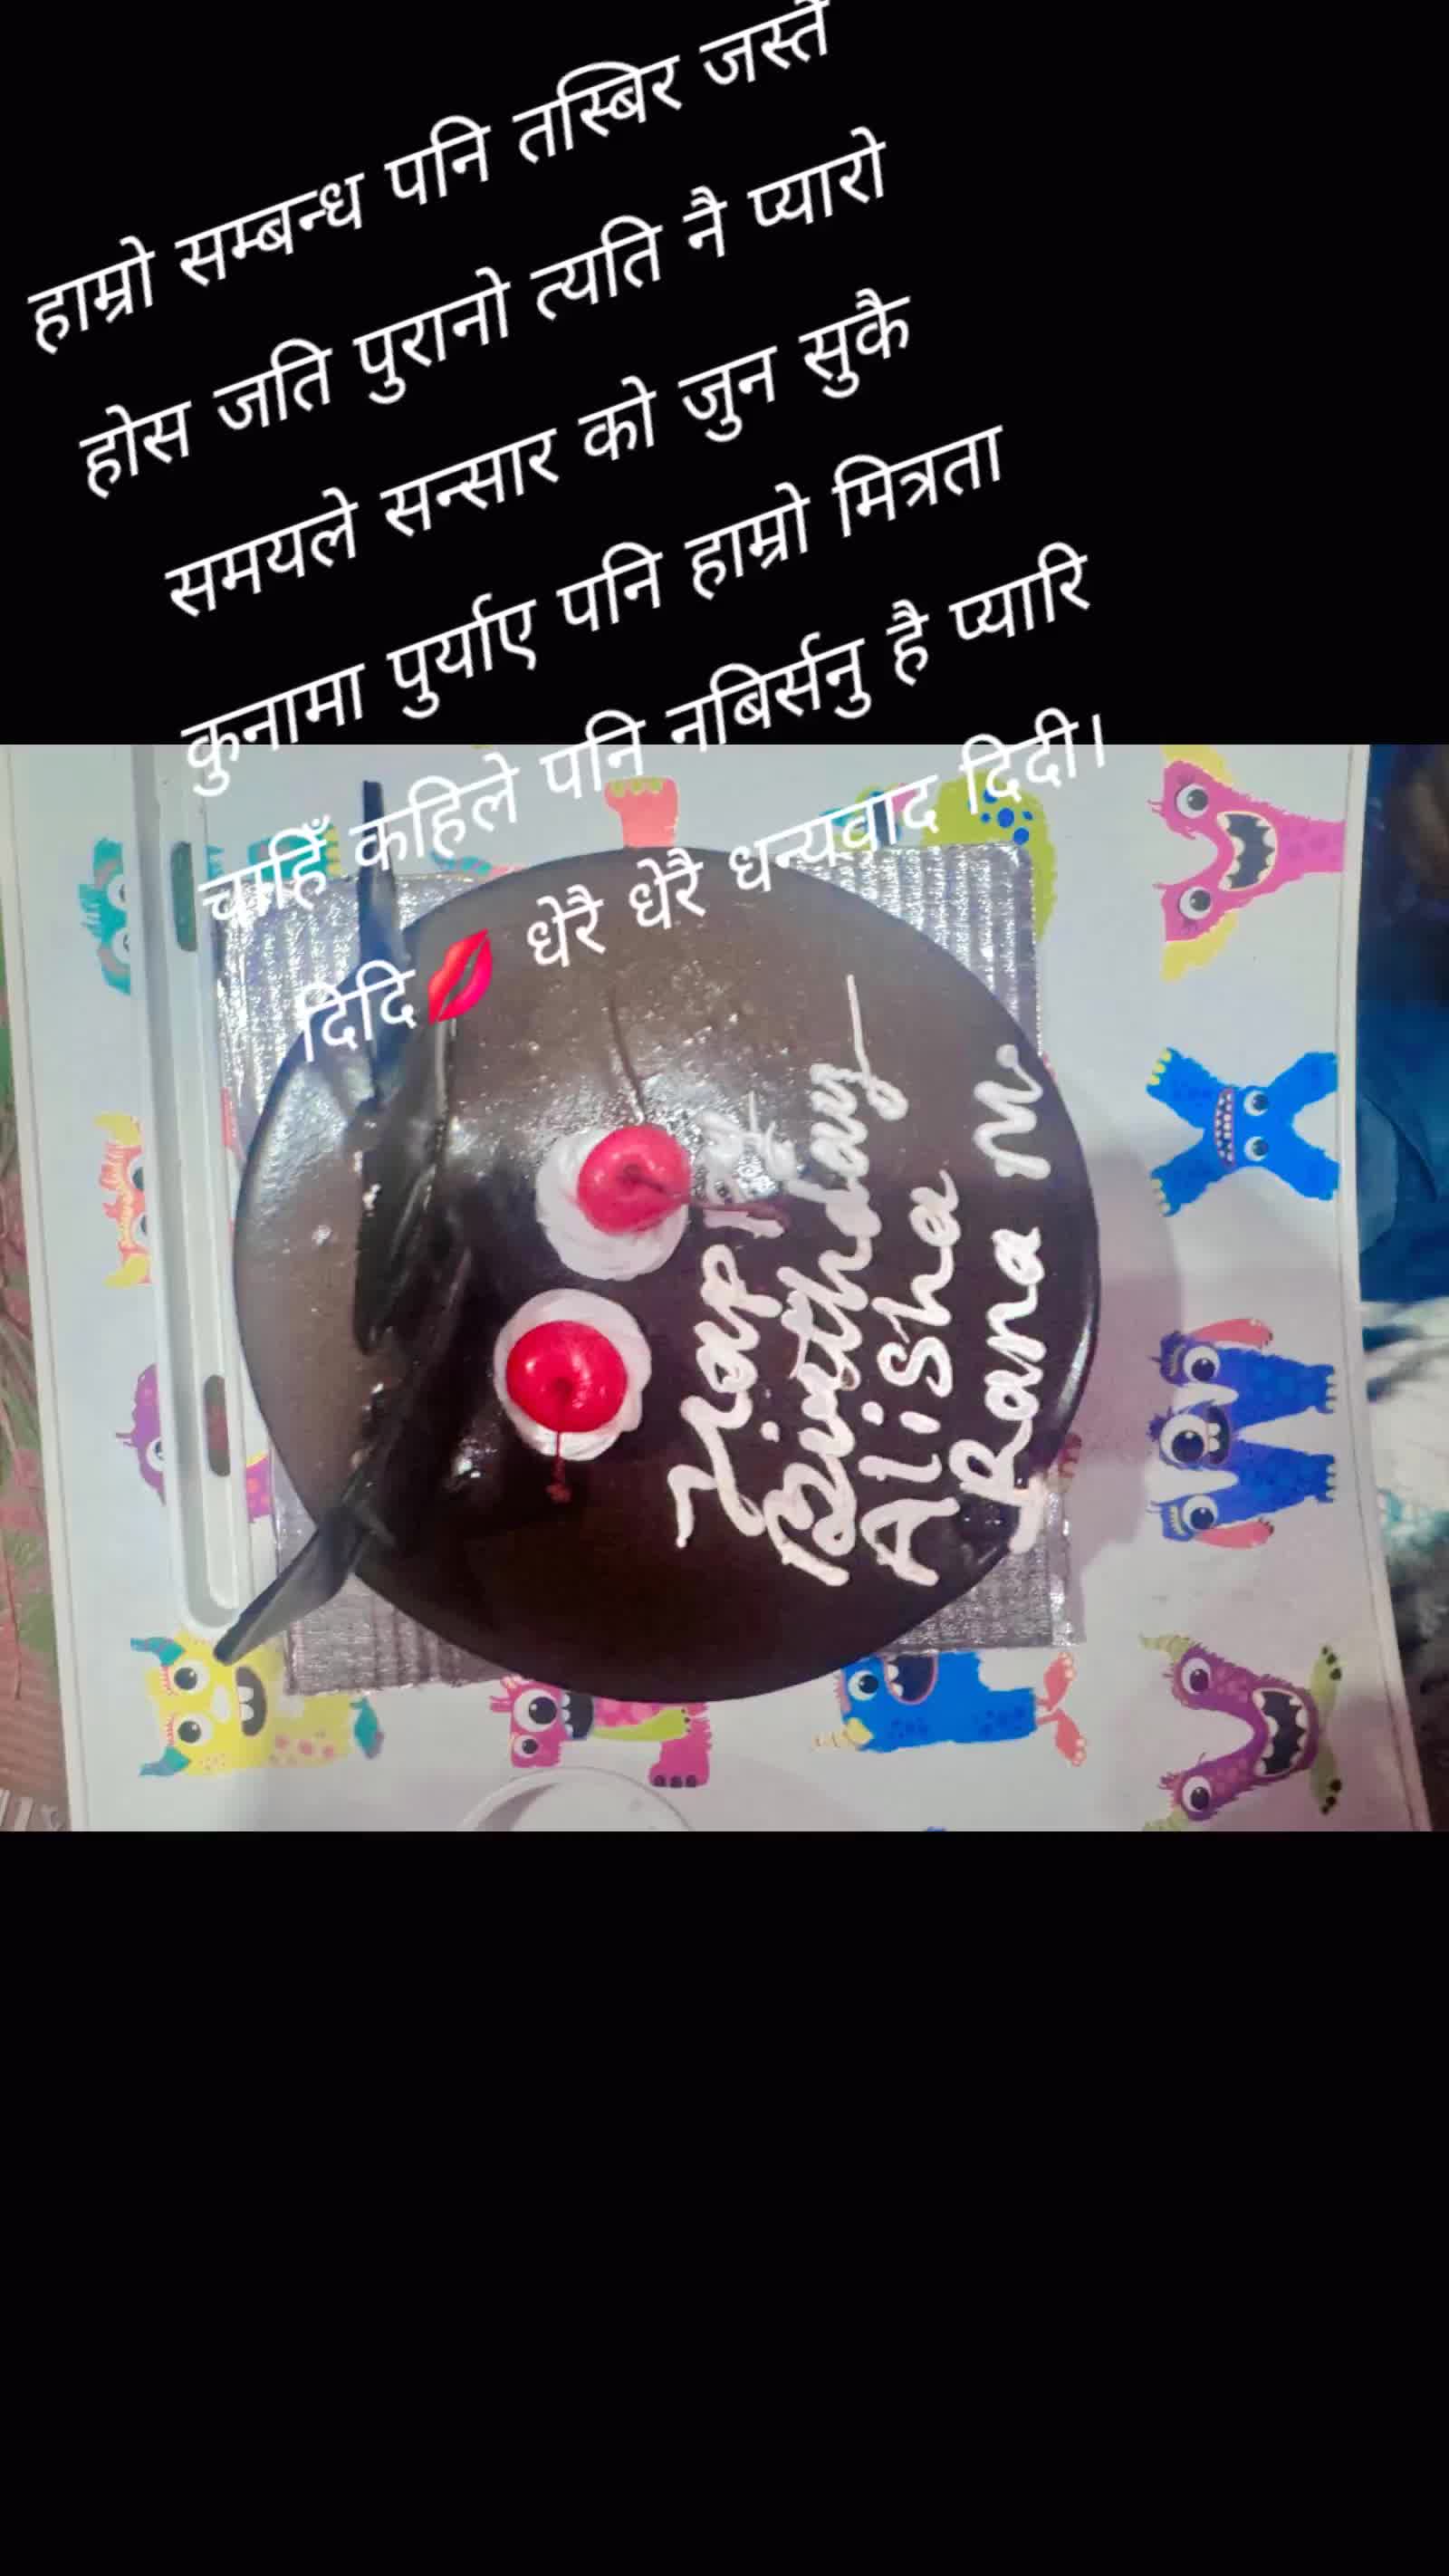 हाम्रो सम्बन्ध पनि तस्बिर जस्तै
होस जति पुरानो त्यति नै प्यारो
समयले सन्सार को जुन सुकै
कुनामा पुर्याए पनि हाम्रो मित्रता
चाहिँ कहिले पनि नबिर्सनु है प्यारि
दिदि💋 धेरै धेरै धन्यवाद दिदी।
Happy
Birthday
Alisha
Rana m